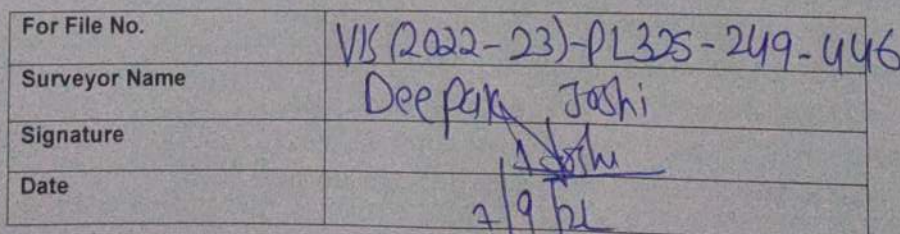 For File No. VIS (2022-23)-PL325-249-446
Surveyor Name Deepak Joshi
Signature
Date 7/9/22